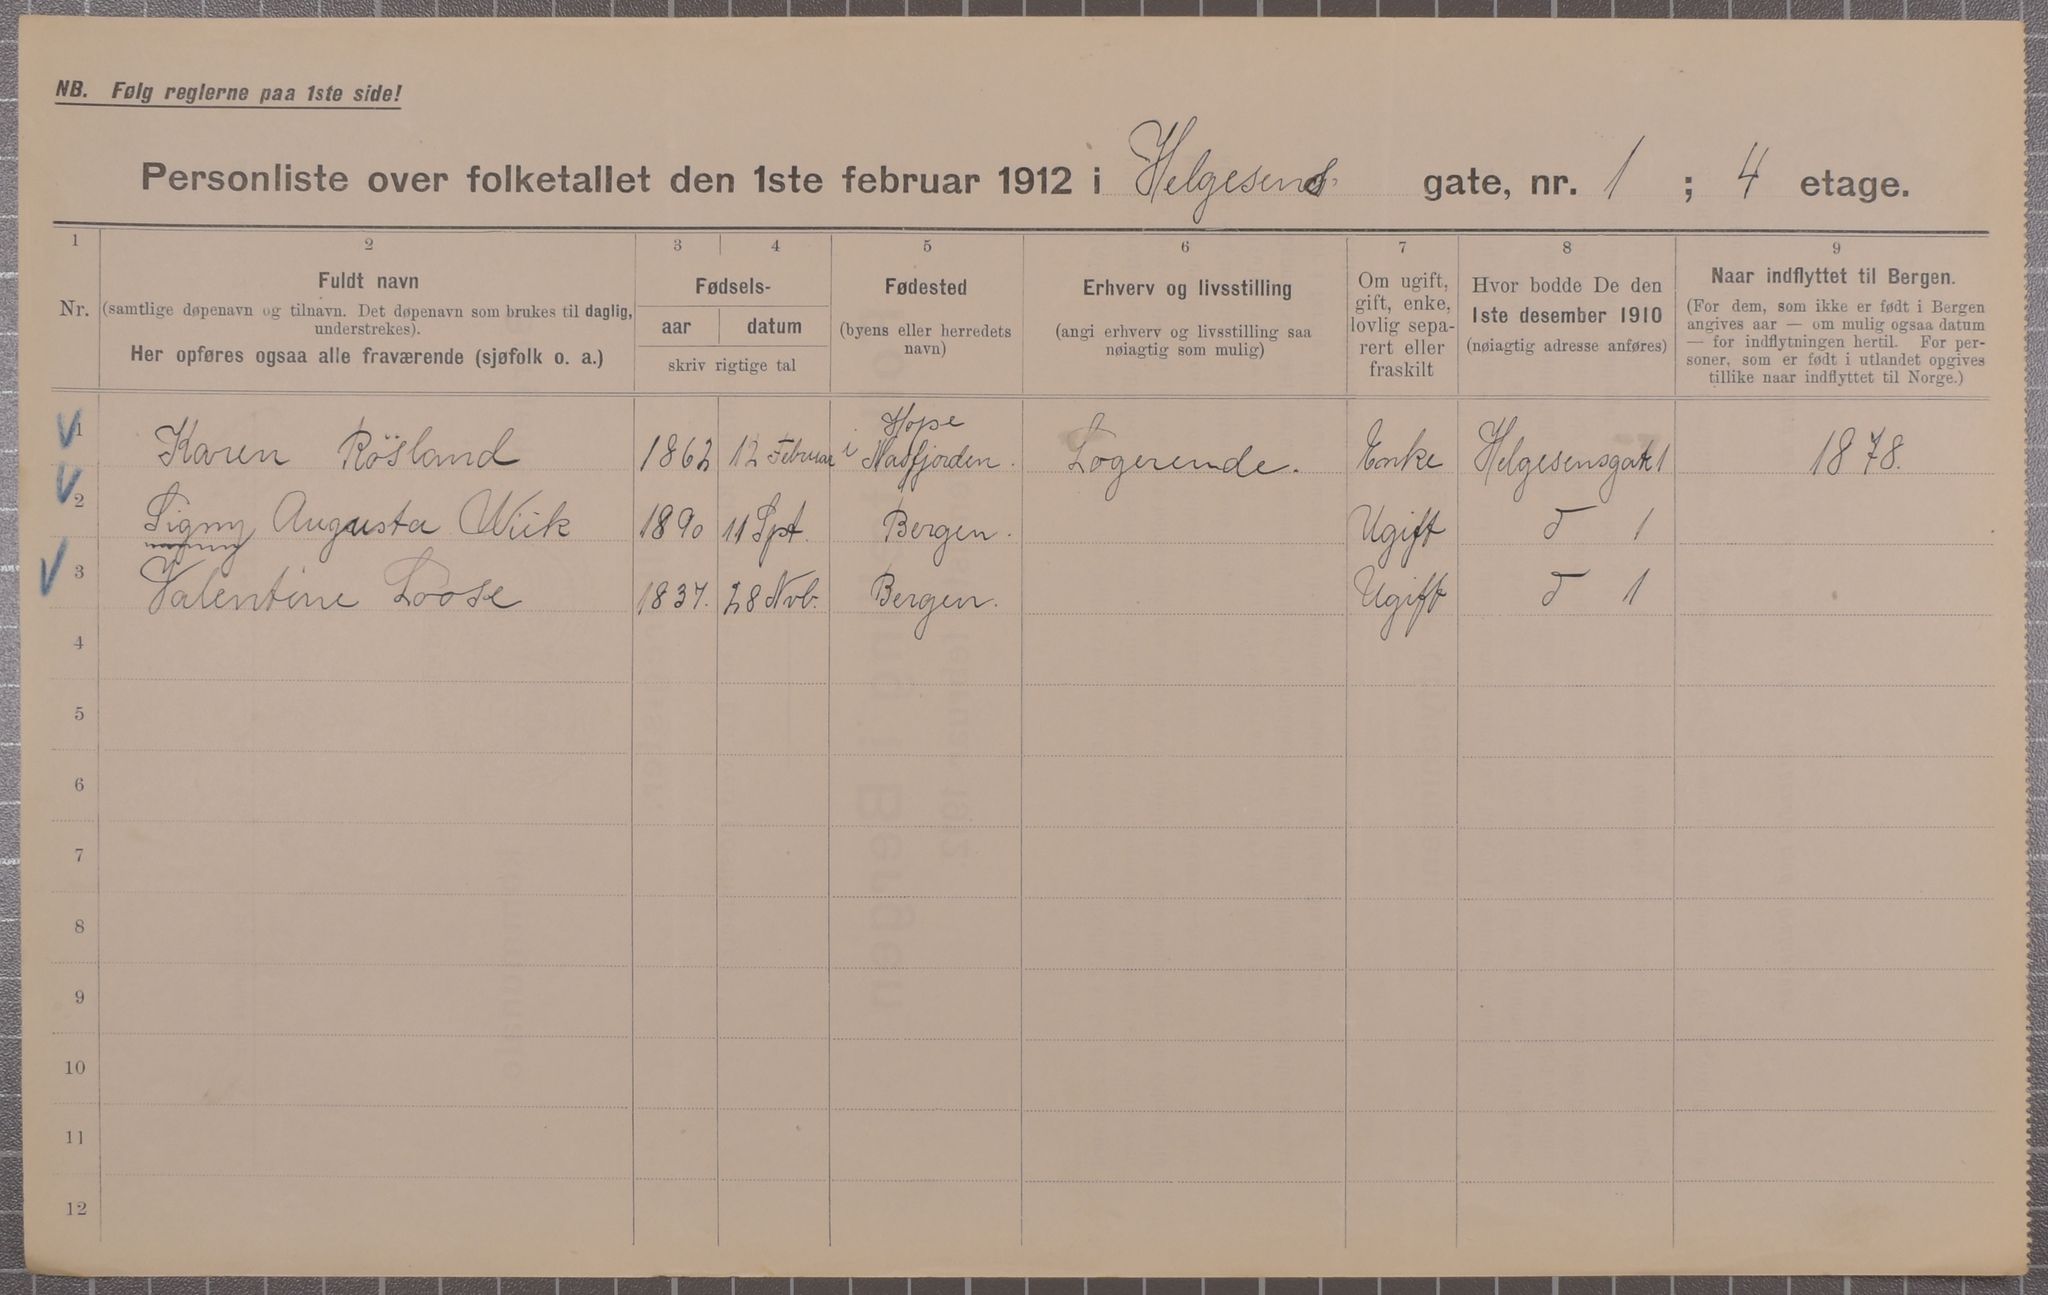 NB. Følg reglerne paa 1ste side!
Personliste over folketallet den 1ste februar 1912 i Helgesens gate, nr. 1 ; 4 etage.
1 2 3 4 5 6 7 8 9
Nr.
Fuldt navn
(samtlige døpenavn og tilnavn. Det døpenavn som brukes til daglig,
understrekes).
Her opføres ogsaa alle fraværende (sjøfolk o. a.)
Fødsels-
aar datum
skriv rigtige tal
Fødested
(byens eller herredets
navn)
Erhverv og livsstilling
(angi erhverv og livsstilling saa
nøiagtig som mulig)
Om ugift,
gift, enke,
lovlig sepa-
rert eller
fraskilt
Hvor bodde De den
1ste desember 1910
(nøiagtig adresse anføres)
Naar indflyttet til Bergen.
(For dem, som ikke er født i Bergen
angives aar — om mulig ogsaa datum
— for indflytningen hertil. For per-
soner, som er født i utlandet opgives
tillike naar indflyttet til Norge.)
1 Karen Rösland 1862 12 Februar Hope i Masfjorden. Logerende. Enke Helgesensgate 1 1878.
2 Signy Augusta Wiik 1890 11 Spt. Bergen. Ugift d 1
3 Valentine Loose 1837. 28 Nvb. Bergen. Ugift d 1
4
5
6
7
8
9
10
11
12